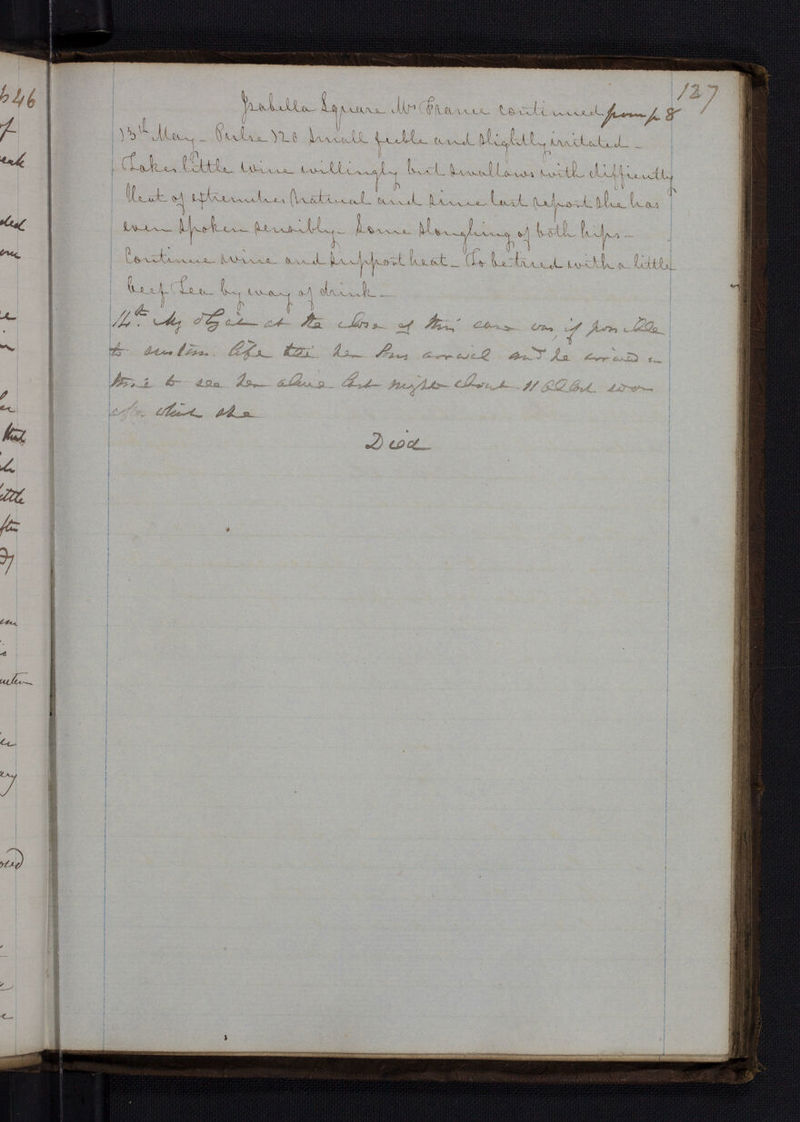 127
Isabella Square Mrs France continued from p 8
13th May - Pulse 120 small feeble and slightly irritated -
Takes little wine willingly but swallows with difficulty
Heat of extremities natural and since last report she has
even spoken sensibly - Some sloughing of both hips -
Continue wine and support heat - To be tried with a little
beef Tea by way of drink -
14th. My object at the close of this case was, if possible
to sustain life till her Son arrived and he arrived in
time to see her alive last night about 11 oClock soon
after which she
Died